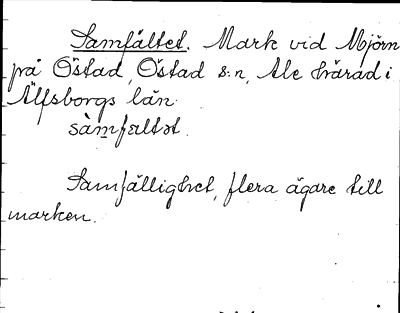 Samfältet. Mark vid Mjörn
på Östad, Östad s:n, Ale härad i
Älfsborgs län.
sàmfæltət.
Samfällighet, flera ägare till
marken.